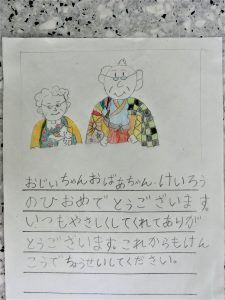 おじいちゃんおばあちゃん.けいろう
のひおめでとうございます。
いつもやさしくしてくれてありが
とうございます。これからもけん
こうでちょうせいしてください。